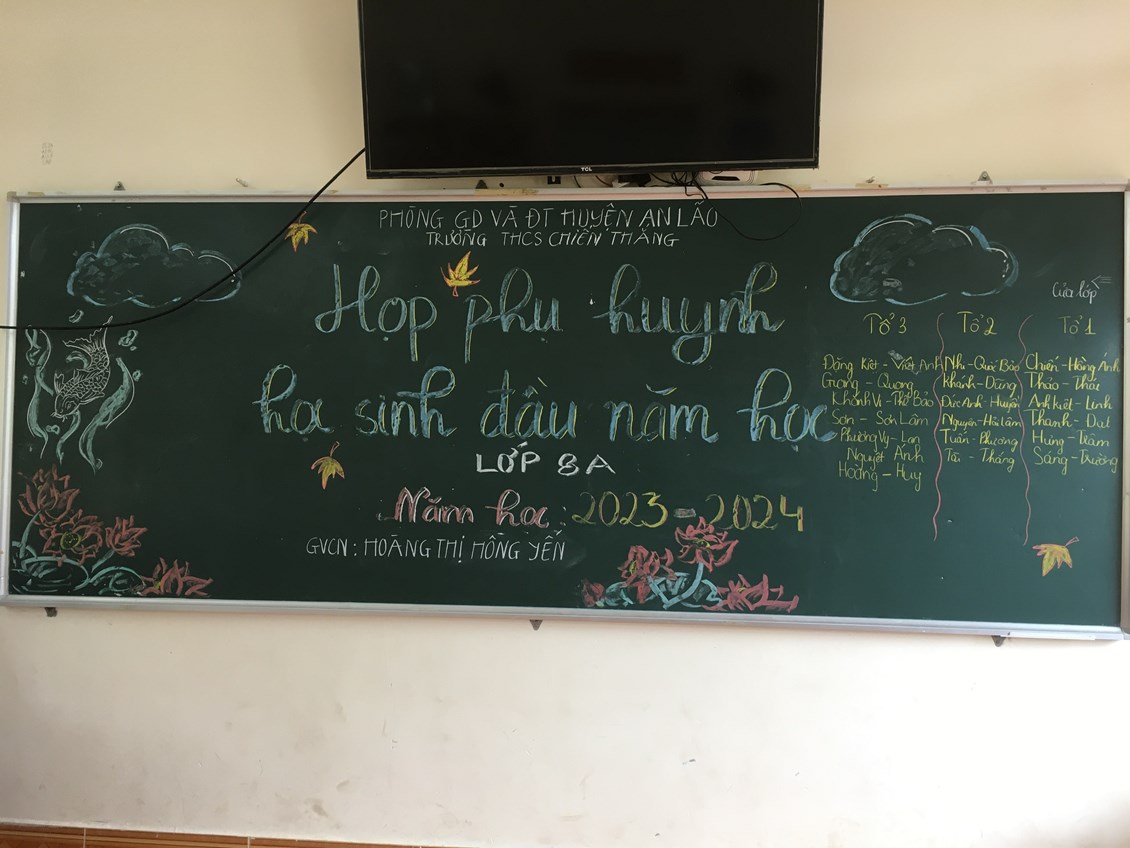 TCL
PHÒNG GD VÀ ĐT HUYỆN AN LÃO
TRƯỜNG THCS CHIẾN THẮNG
Họp phu huynh
họa sinh đầu năm học
LỚP 8A
Năm học : 2023 - 2024
GVCN : HOÀNG THỊ HỒNG YẾN
Cửa lớp
Tổ 3
Đặng Kiệt - Việt Anh
Giang - Quang
Khánh Vi - Thế Bảo
Sơn - Sơn Lâm
Phương Vy - Lan
Nguyệt Ánh
Hoàng - Huy
Tổ 2
Nhi - Quốc Bảo
Khánh - Dũng
Đức Anh - Huyền
Nguyên - Hải Lâm
Tuấn - Phương
Tài - Thắng
Tổ 1
Chiến - Hồng Ánh
Thảo - Thái
Anh Kiệt - Linh
Thanh - Đạt
Hưng - Trâm
Sáng - Trường